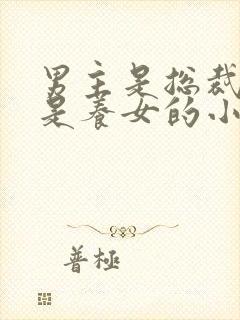 男主是总裁
是养女的小
普極